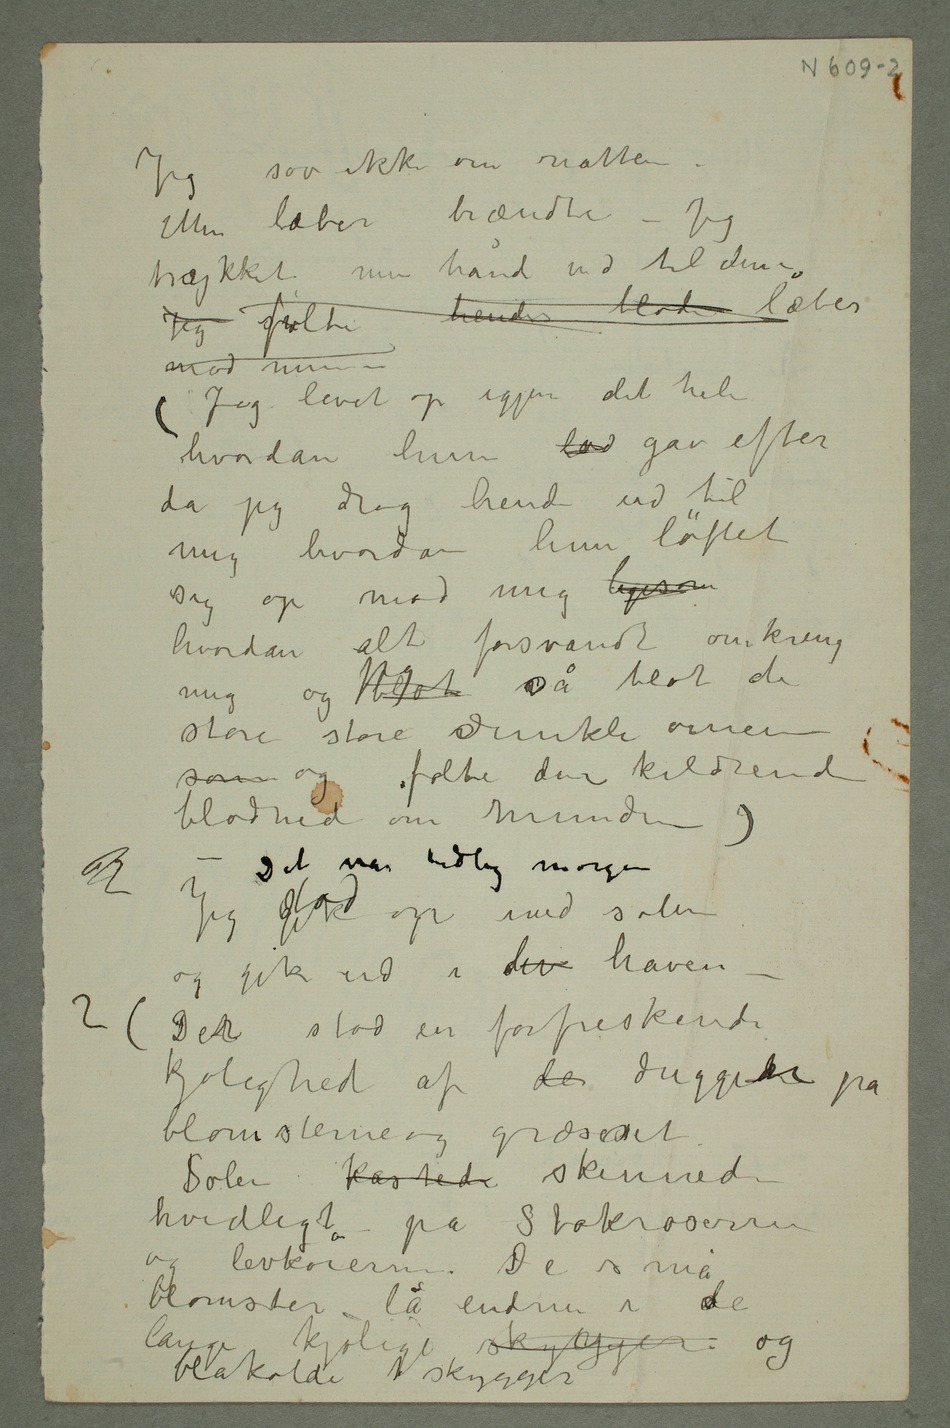 N 609-2
Jeg sov ikke om natten.
Mine læber brændte – Jeg
trykket min hånd ind til dem.
Jeg følte hendes bløde læber
mod mine –
(Jeg levet op igjen det hele
hvordan hun lod gav efter
da jeg drog hende ind til
mig hvordan hun löftet
sig op mod mig ligesom
hvordan alt forsvandt omkring
mig og blot jeg så blot de
store store dunkle öinene
som og følte den kildrende
blødhed om munden)
– Det var tidlig morgen
Jeg gik stod op med solen
og gik ud i den haven –
? (Der stod en forfriskende
kjølighed af de duggen på
blomsterne og græsset.
Solen kastede skinnede
hvidligt på Stokroserne
og levkøierne. De små
blomster lå endnu i de
lange kjølige skygger og
blåkolde skygger